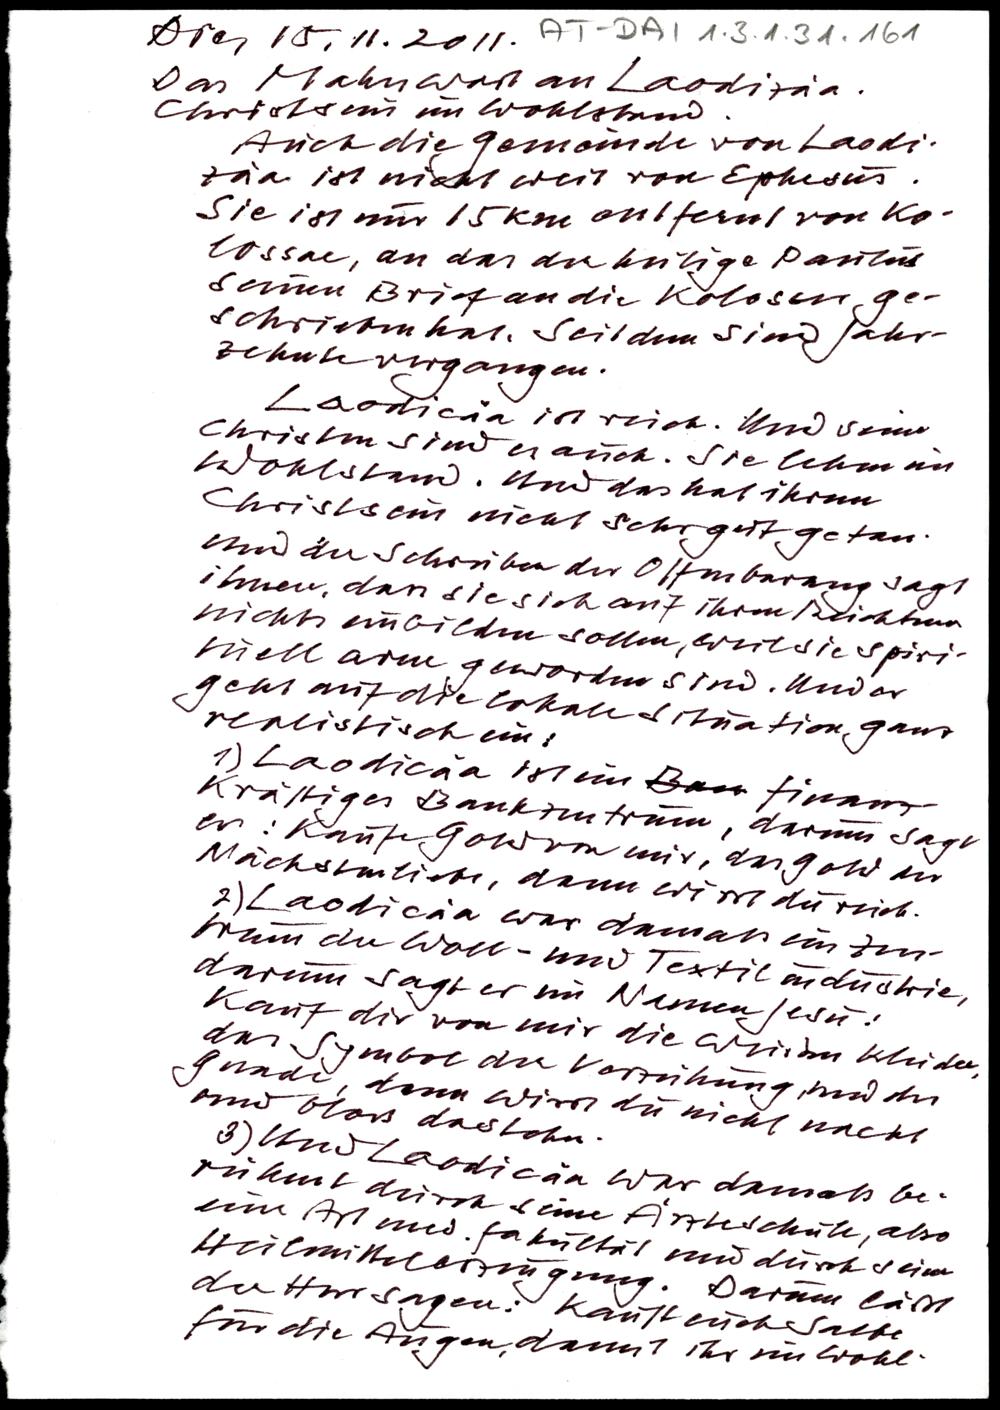 Die, 15.11.2011. AT-DAI 1.3.1.31.161
Das Mahnwort an Laodizäa.
Christsein im Wohlstand.
Auch die Gemeinde von Laodi-
zäa ist nicht weit von Ephesus.
Sie ist nur 15 km entfernt von Ko-
lossae, an das der heilige Paulus
seinen Brief an die Kolosser ge-
schrieben hat. Seitdem sind Jahr-
zehnte vergangen.
Laodicäa ist reich. Und seine
Christen sind es auch. Sie leben im
Wohlstand. Und das hat ihrem
Christsein nicht sehr gut getan.
Und der Schreiber der Offenbarung sagt
ihnen, dass sie sich auf ihren Reichtum
nichts einbilden sollen, weil sie spiri-
tuell arm geworden sind. Und er
geht auf die lokale Situation ganz
realistisch ein:
1) Laodicäa ist ein Ban finanz-
kräftiges Bankzentrum, darum sagt
er: Kaufe Gold von mir, das Gold der
Nächstenliebe, dann wirst du reich.
2) Laodicäa war damals ein Zen-
trum der Woll- und Textilindustrie,
darum sagt er im Namen Jesu:
Kauf dir von mir die weissen Kleider,
das Symbol der Verzeihung und der
Gnade, dann wirst du nicht nackt
und bloss dastehn.
3) Und Laodicäa war damals be-
rühmt durch seine Ärzteschule, also
eine Art med. Fakultät und durch seine
Heilmittelerzeugung. Darum lässt
der Herr sagen: Kauft euch Salbe
für die Augen, damit ihr im Wohl-